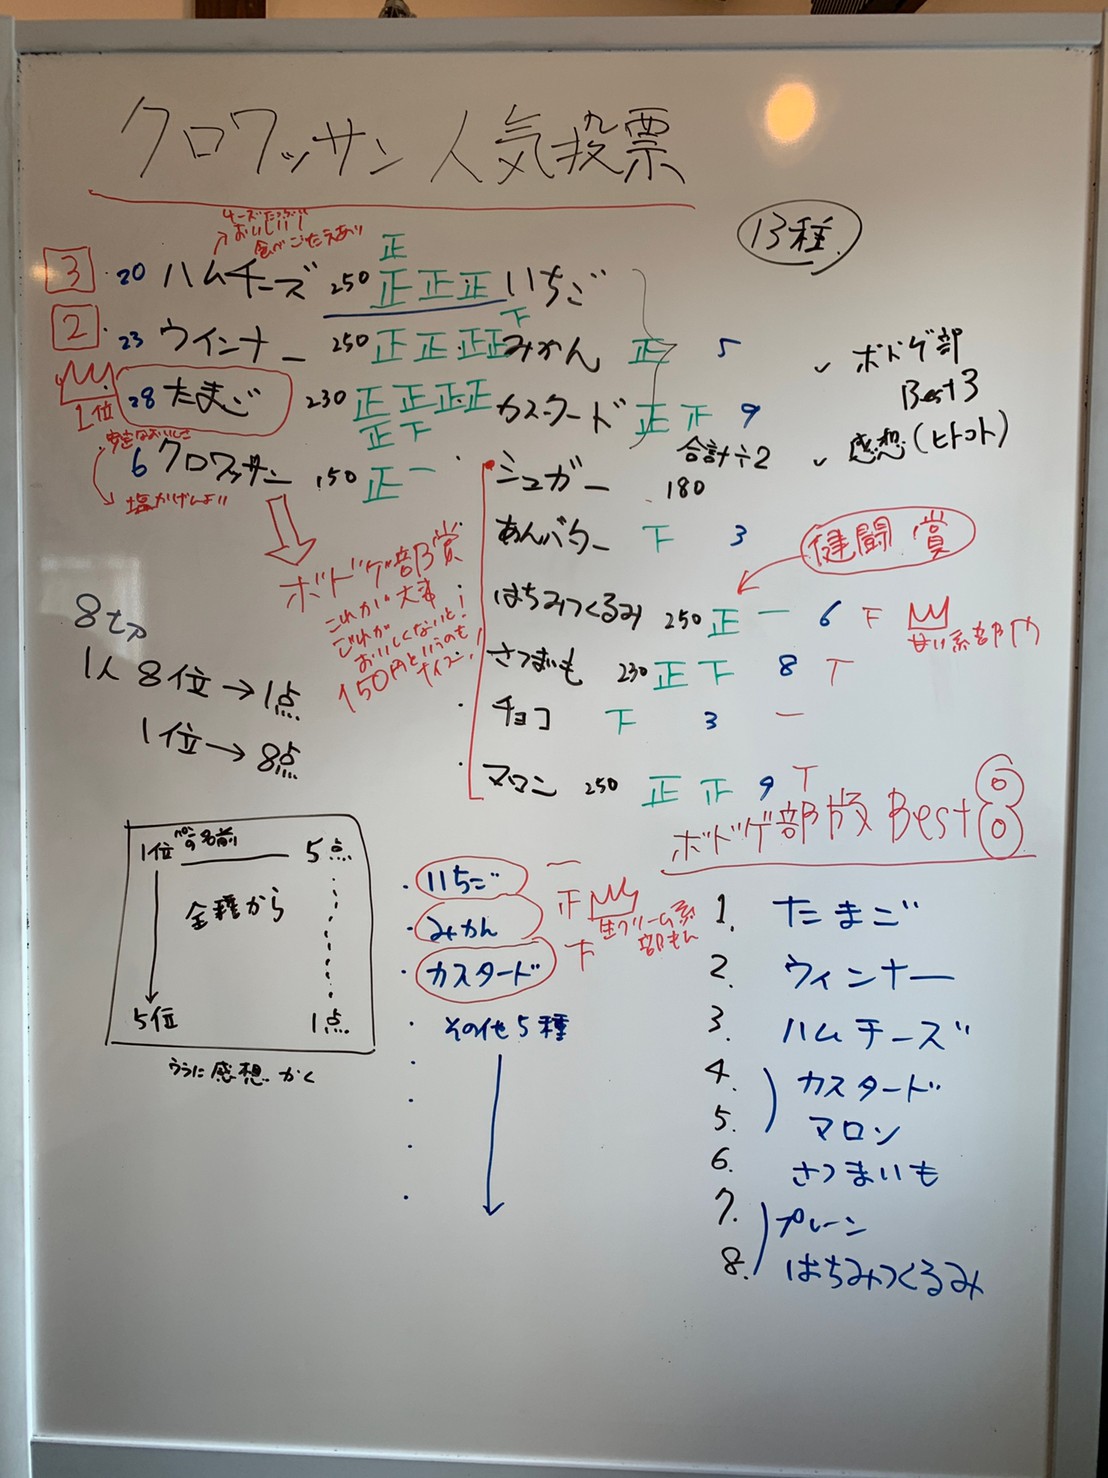 クロワッサン人気投票
13種
チーズたっぷり
おいしい!
食べごたえあり
正
3 20 ハムチーズ 250 正正正 いちご
2 23 ウインナー 250 正正正正下 みかん 正 5
1位 28 たまご 230 正正正正 カスタード 正正 9
正下
安定なおいしさ
6 クロワッサン 150 正一
塩かげんよい!
合計÷2
ボドゲ部
Best3
感想(ヒトコト)
シュガー 180
あんバター 下 3
健闘賞
はちみつくるみ 250 正一 6 下
甘い系部門
さつまいも 230 正下 8 T
チョコ 下 3 一
マロン 250 正正 9 T
ボドゲ部賞
これが大事
これが
おいしくないと!
150円というのも
ナイスー!!
8セア
1人8位→1点
1位→8点
1位 パンの名前 5点
全種から
5位 1点
うらに感想かく
いちご 一
みかん 正
生クリーム系
部もん
カスタード 下
その他5種
ボドゲ部版Best8
1. たまご
2. ウィンナー
3. ハムチーズ
4. カスタード
5. マロン
6. さつまいも
7. プレーン
8. はちみつくるみ